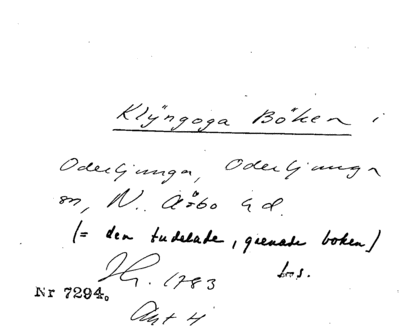 Klÿngoga Böken i
Oderljunga, Oderljunga
sn, N. Åsbo hd.
(= den tudelade, grenade boken)
1783 bs.
Nr 7294.
Akt 4